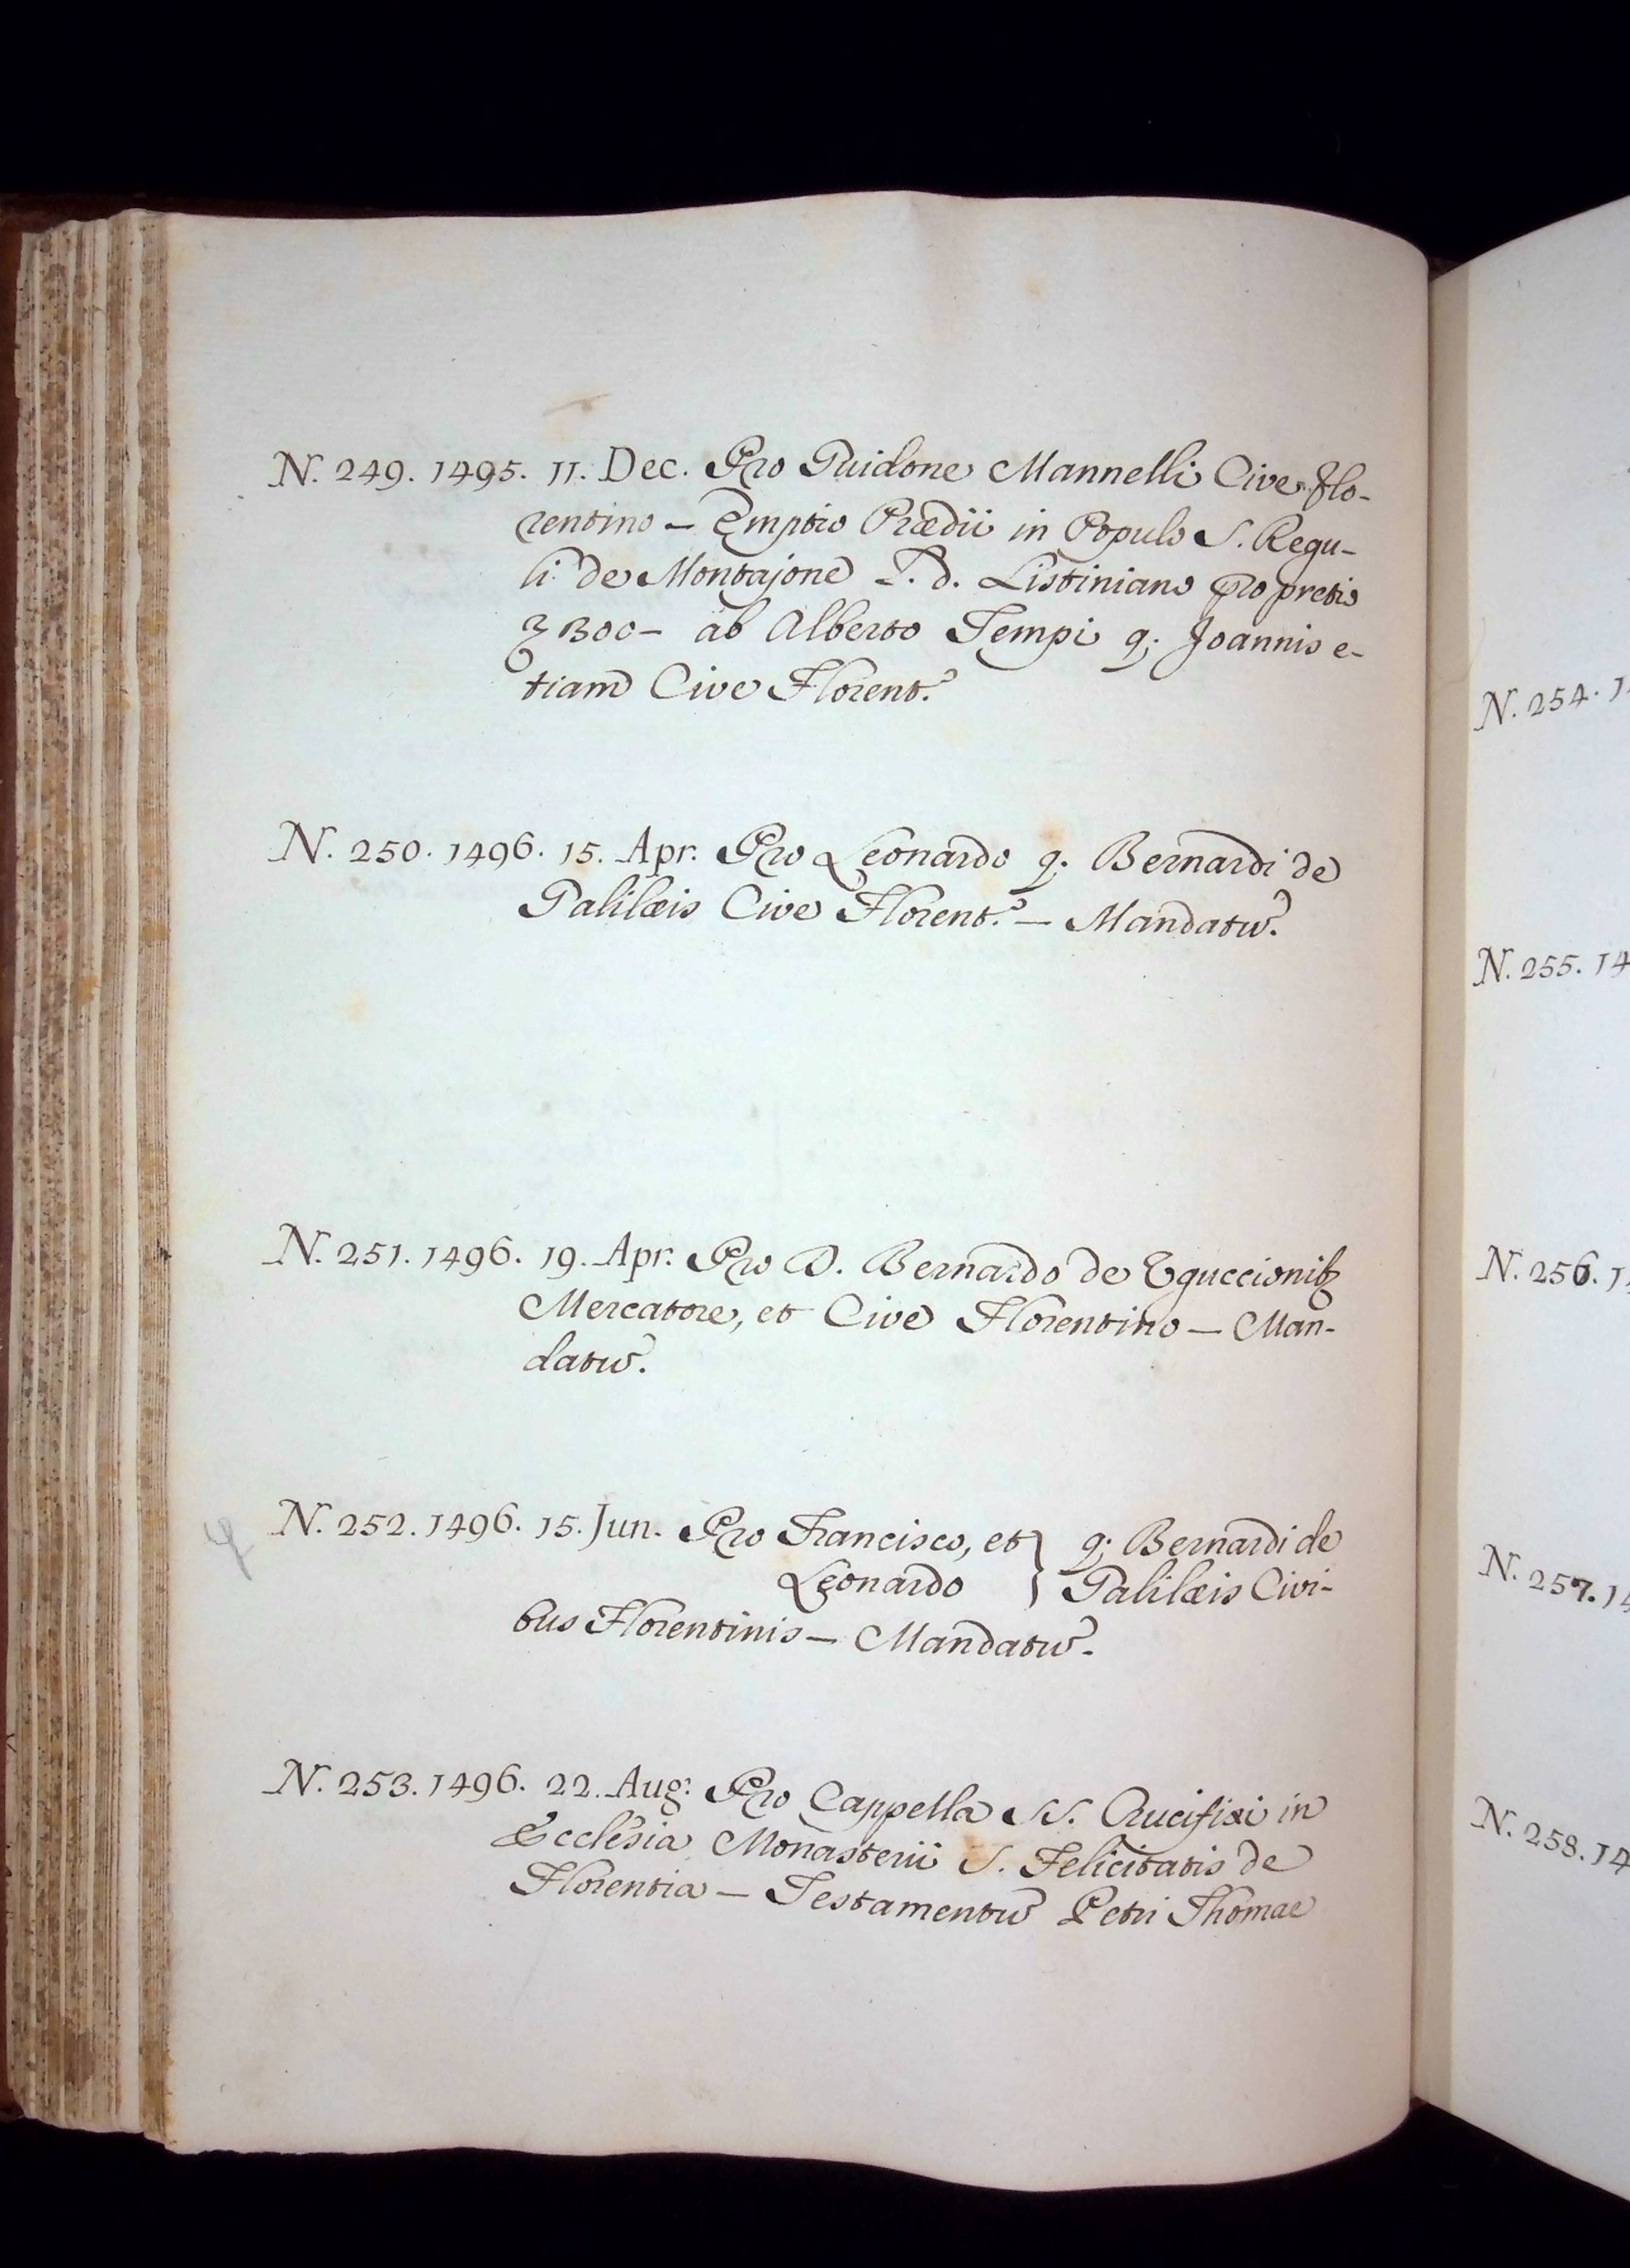 N. 249. 1495. 11. Dec. Pro Guidone Mannelli Cive Flo-
rentino — Emptio Prædii in Populo S. Regu-
li de Montajone L. d. Listiniano pro pretio
300 — ab Alberto Tempi q; Joannis e-
tiam Cive Florent.º
N. 250. 1496. 15. Apr. Pro Leonardo q. Bernardi de
Galilæis Cive Florent.º — Mandatū.
N. 251. 1496. 19. Apr. Pro D. Bernardo de
Mercatore, et Cive Florentino — Man-
datū.
N. 252. 1496. 15. Jun. Pro Francisco, et } q; Bernardi de
Leonardo } Galilæis Civi-
bus Florentinis — Mandatū.
N. 253. 1496. 22. Aug: Pro Cappella SS. Crucifixi in
Ecclesia Monasterii S. Felicitatis de
Florentia — Testamentū Petri Thomae
N. 254. 1
N. 255. 14
N. 256. 1
N. 257. 14
N. 258. 14